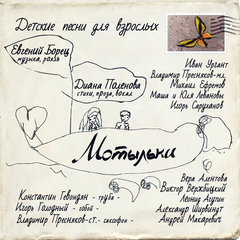 Детские песни для взрослых
Евгений Борец
музыка, рояль
Диана Поленова
стихи, проза, вокал
Иван Ургант
Владимир Пресняков-мл.
Михаил Ефремов
Маша и Юля Левановы
Игорь Саруханов
Мотыльки
Вера Алентова
Виктор Вержбицкий
Леонид Агутин
Александр Ширвиндт
Андрей Макаревич
Константин Гевондян - труба -
Игорь Голодный - гобой -
Владимир Пресняков-ст. - саксофон -